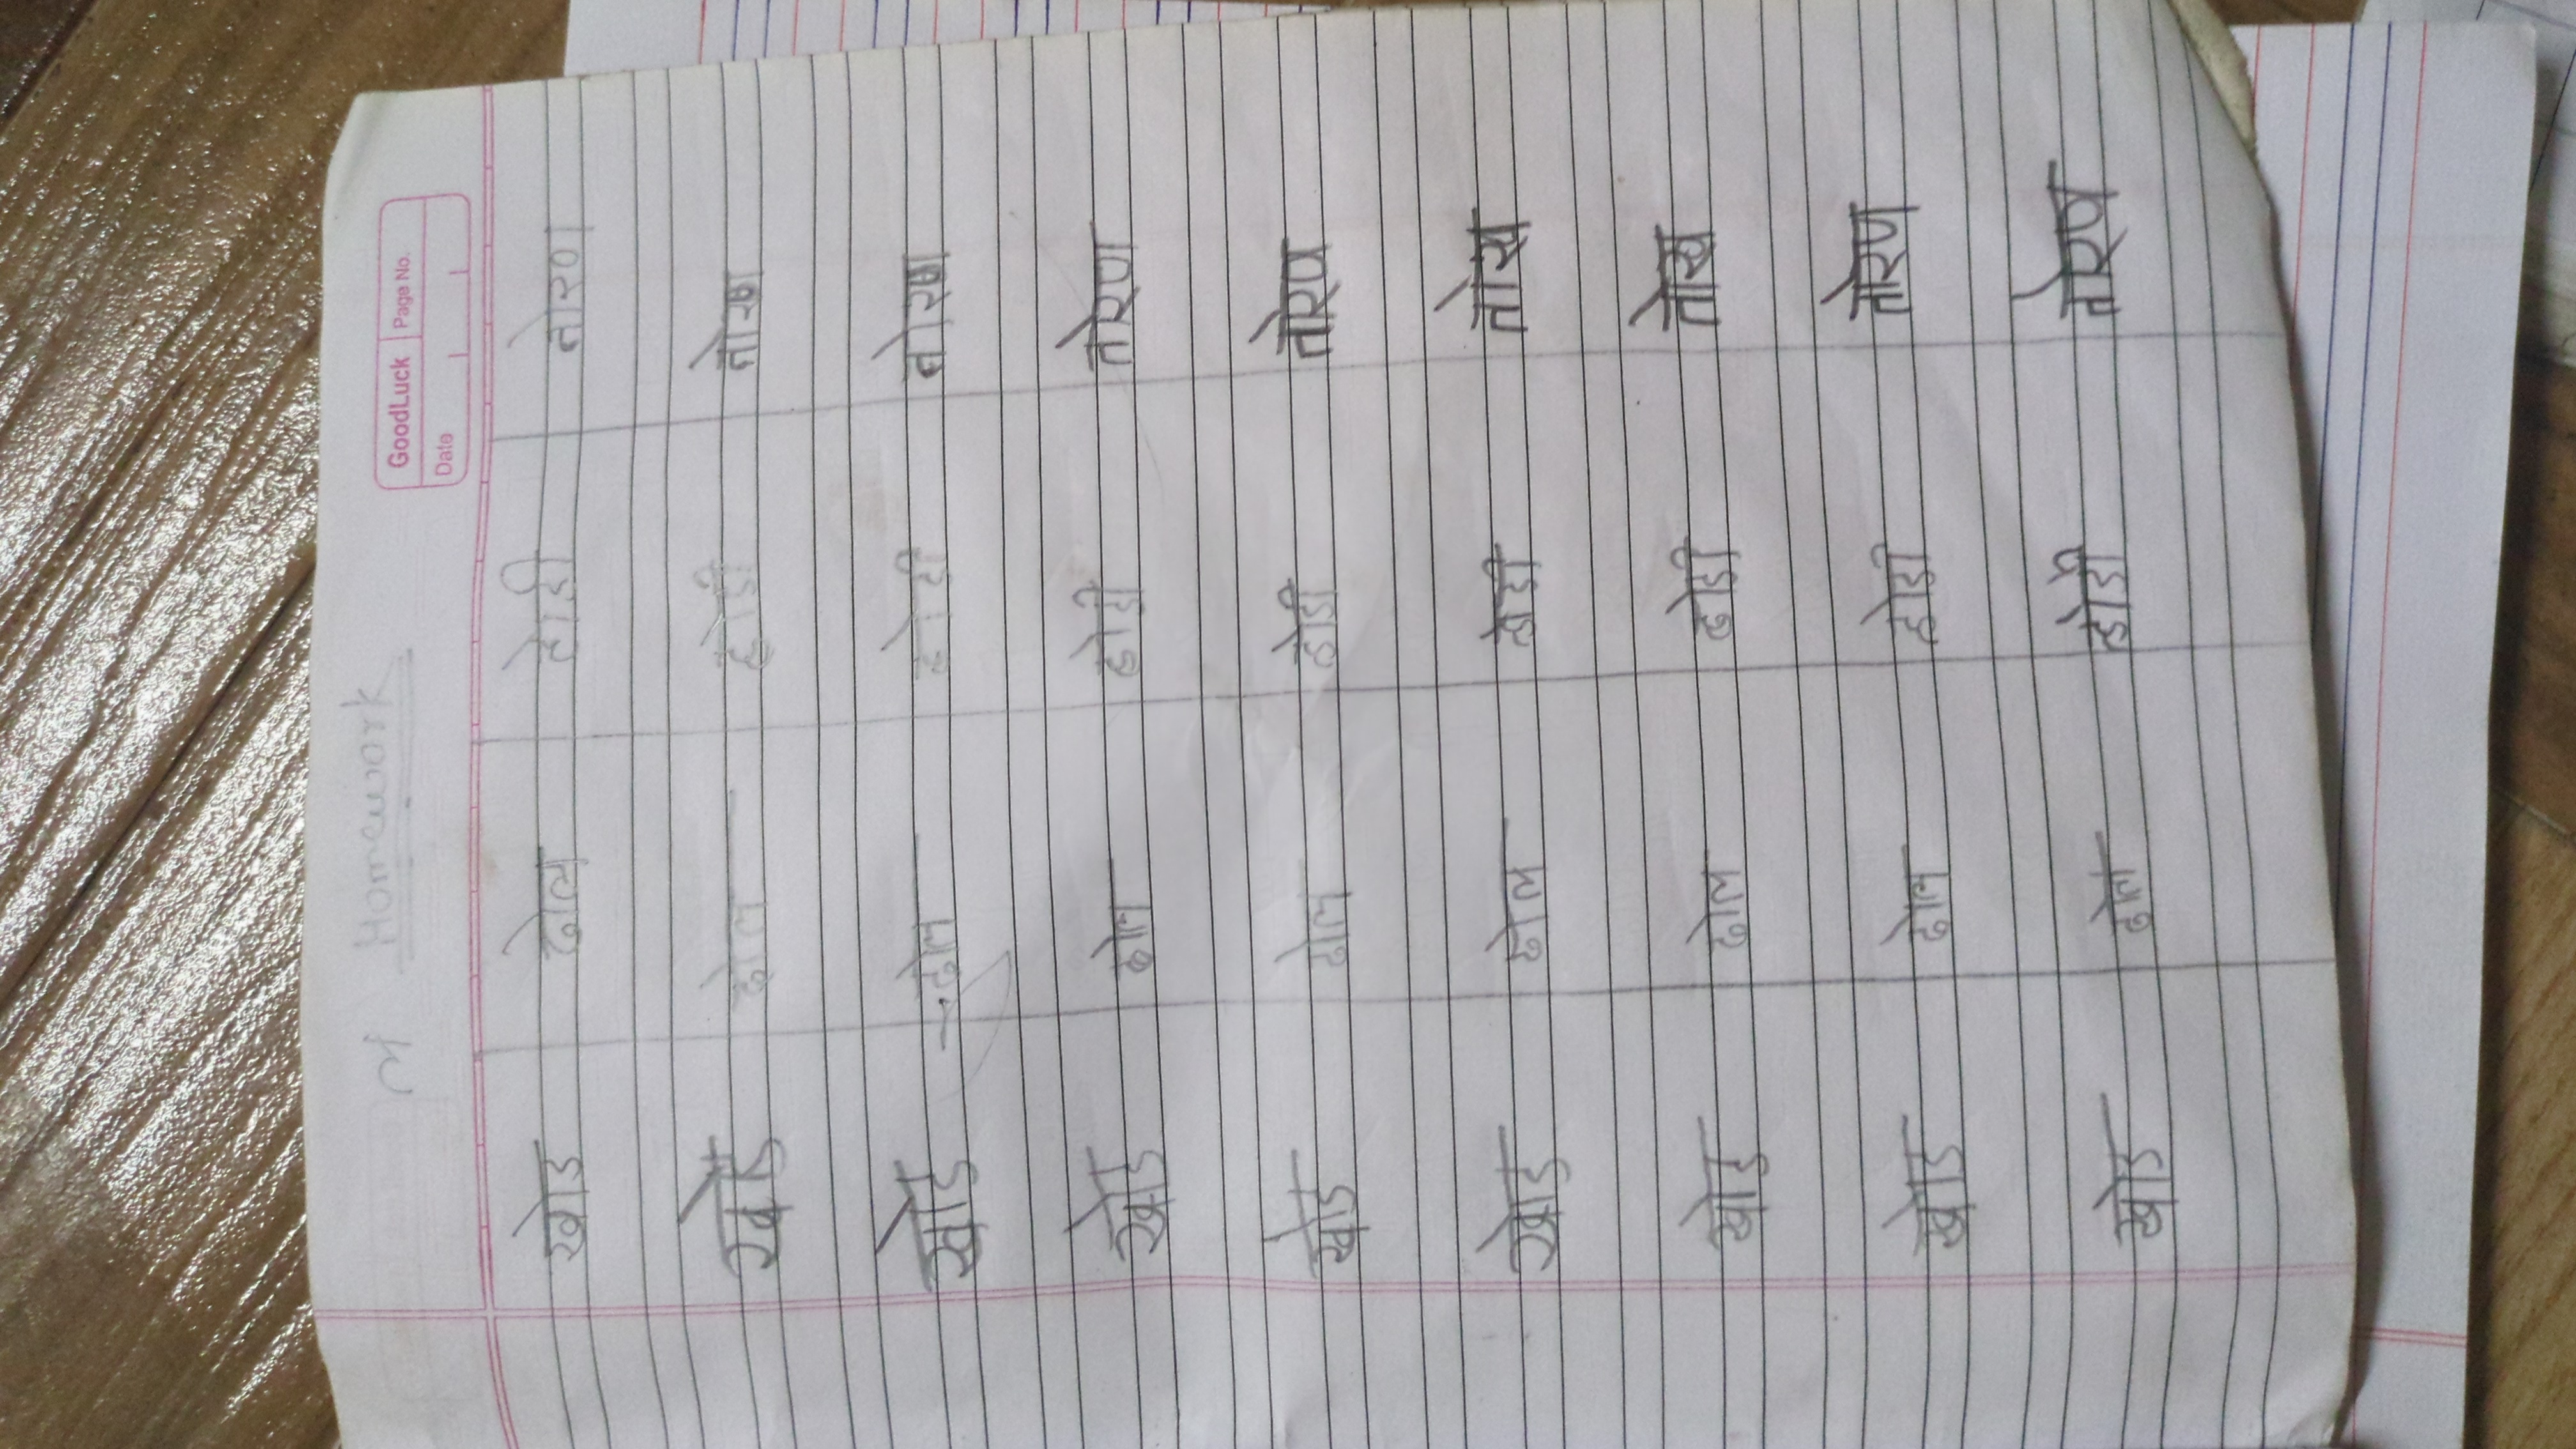 GoodLuck Page No.
Date
Homework
खोड ढोल होडी तोरण
खोड ढोल होडी तोरण
खोड ढोल होडी तोरण
खोड ढोल होडी तोरण
खोड ढोल होडी तोरण
खोड ढोल होडी तोरण
खोड ढोल होडी तोरण
खोड ढोल होडी तोरण
खोड ढोल होडी तोरण